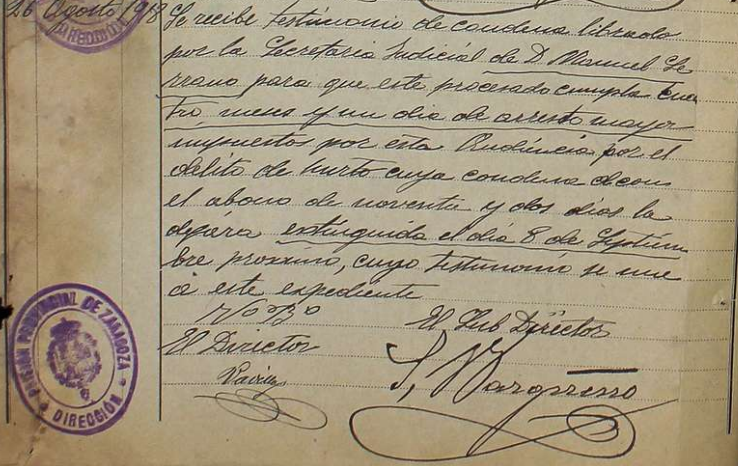 26 Agosto 1918 Se recibe testimonio de condena librado
por la Secretaria Judicial de D Manuel Se
rrano para que este procesado cumpla cua
tro meses y un dia de arresto mayor
impuestos por esta Audiencia por el
delito de hurto cuya condena con
el abono de noventa y dos dias la
dejará extinguida el dia 8 de Septiem
bre proximo, cuyo testimonio se une
á este expediente
Vº Bº El Sub Director
El Director
PRISIÓN PROVINCIAL DE ZARAGOZA
DIRECCIÓN